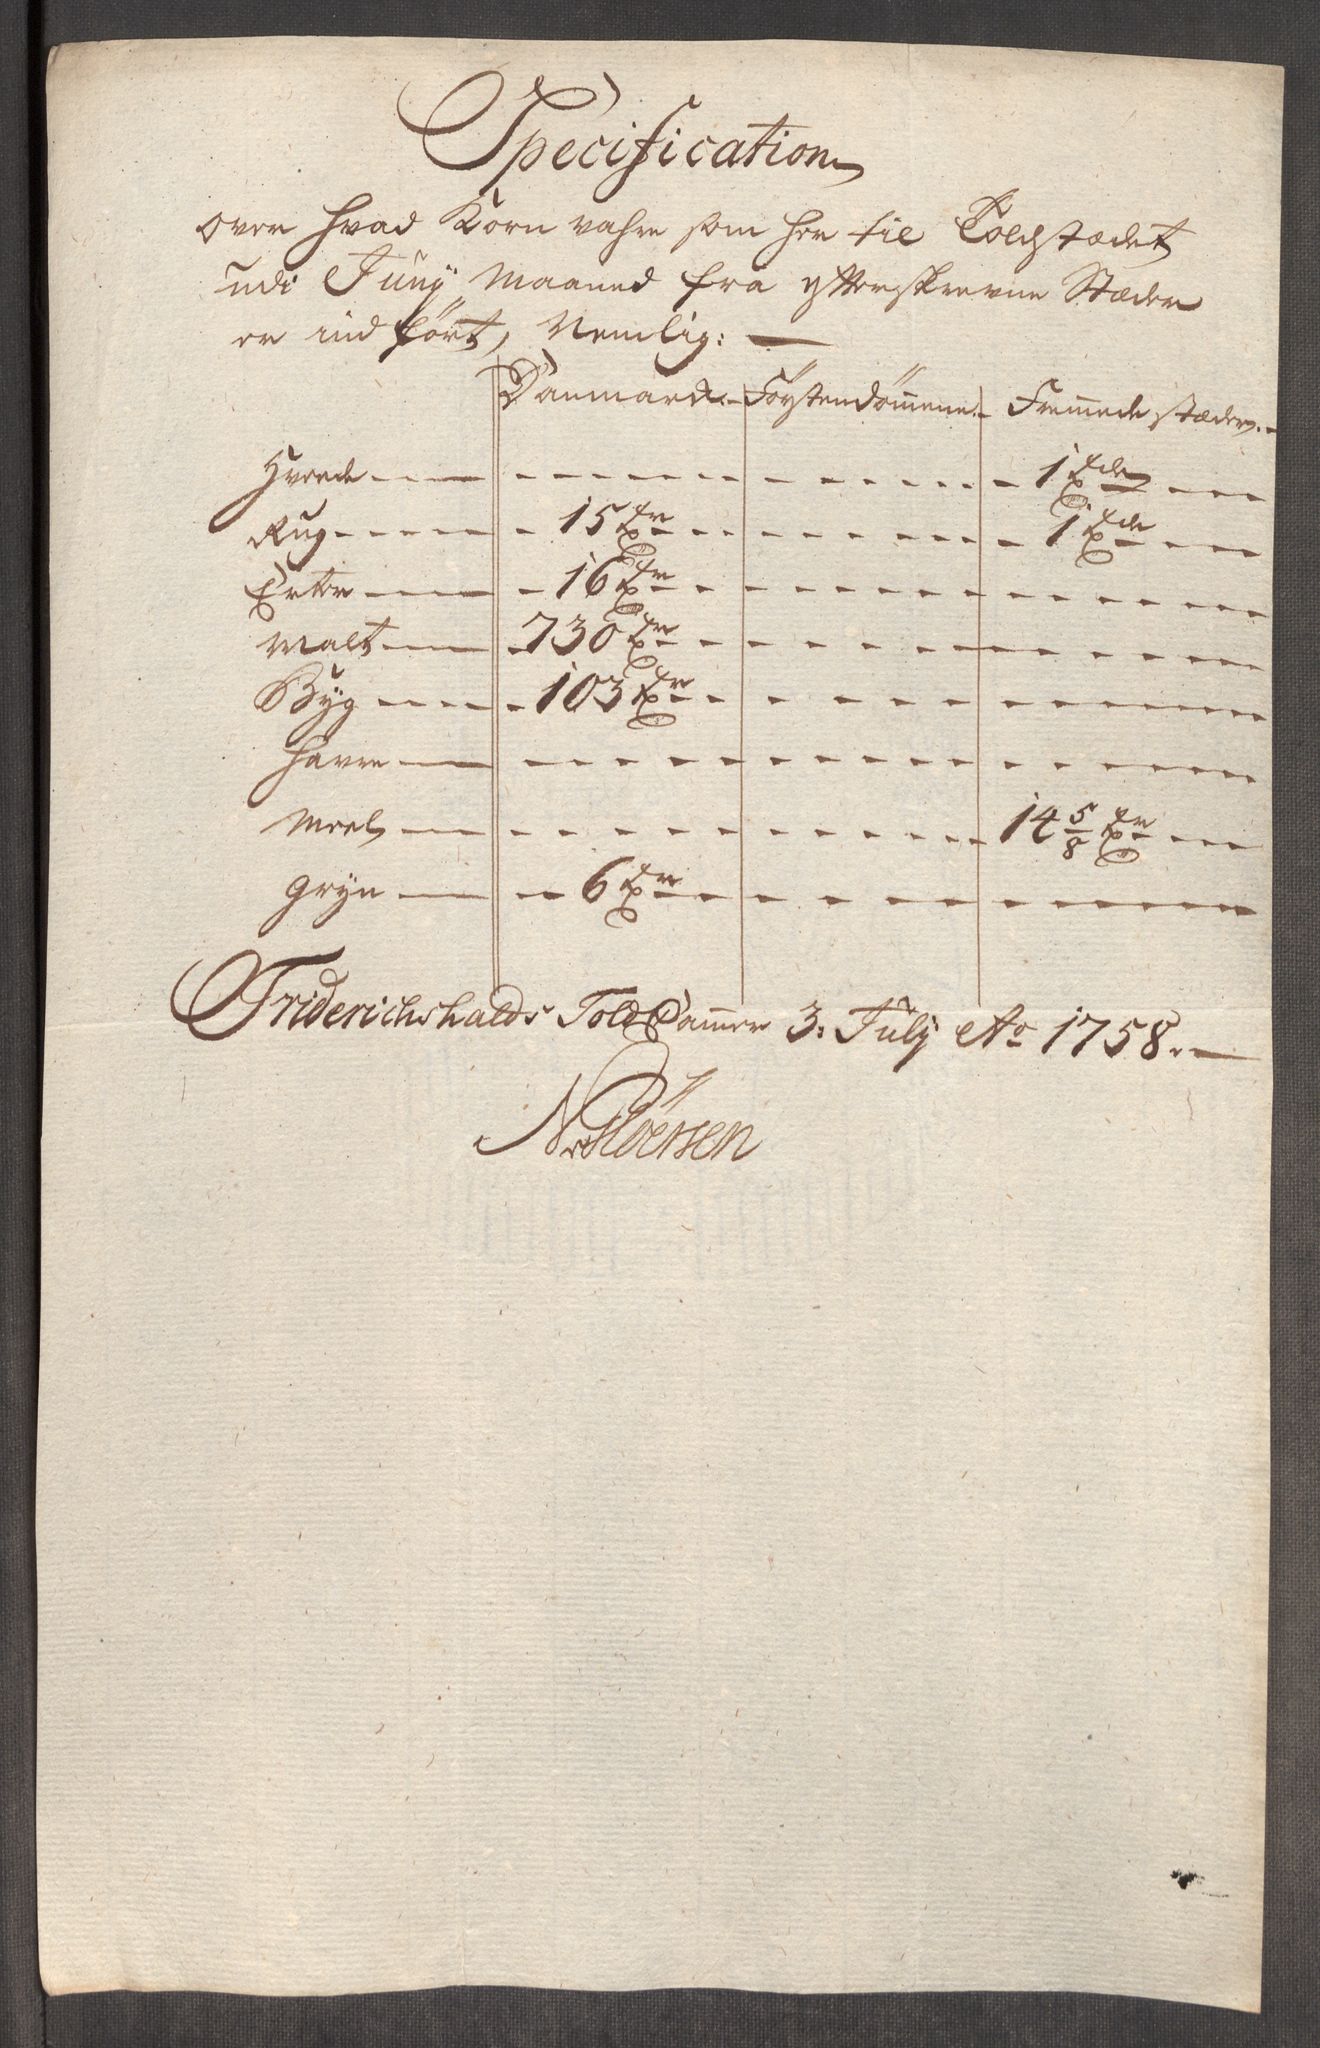 Specification
over hvad Korn vahre som her til Toldstædet
udi Junij Maaned fra ytterskrevne Stæder
er ind ført, Nemlig:
Danmark. Førstendømmene. Fremmede stæder.
Hvede 1 Tde
Rug 15 Tr 1 Tde
Erter 16 Tr
Malt 730 Tr
Byg 103 Tr
Havre
Meel 14 5/8 Tr
Gryn 6 Tr
Friderichshalds Told Camer 3. July Ao 1758.